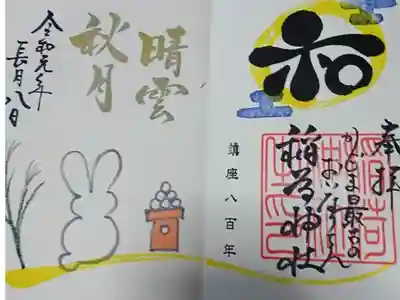 奉拝
かごしま最古の
おいなりさん
稲荷神社
和
鎮座八百年
晴雲
秋月
令和元年
長月八日